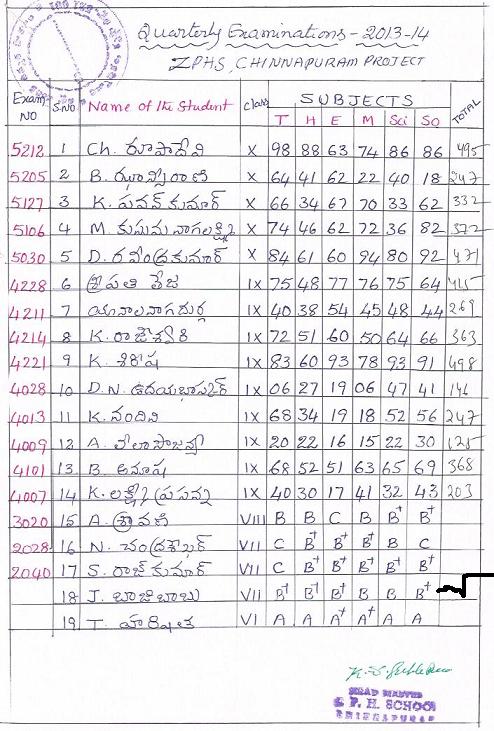 Quarterly Examinations - 2013-14
ZPHS, CHINNAPURAM PROJECT
Exam NO S.NO. Name of the Student class SUBJECTS TOTAL
T H E M Sci So
5212 1 Ch. రూపాదేవి X 98 88 63 74 86 86 495
5205 2 B. ఝాన్సీరాణి X 64 41 62 22 40 18 247
5127 3 K. పవన్ కుమార్ X 66 34 67 70 33 62 332
5106 4 M. కుసుమ నాగలక్ష్మి X 74 46 62 72 36 82 372
5030 5 D. రవీంద్రకుమార్ X 84 61 60 94 80 92 471
4228 6 శ్రీపతి తేజ IX 75 48 77 76 75 64 415
4211 7 యానాలనాగదుర్గ IX 40 38 54 45 48 44 269
4214 8 K. రాజేశ్వరి IX 72 51 60 50 64 66 363
4221 9 K. శిరీష IX 83 60 93 78 93 91 498
4028 10 D.N. ఉదయభాస్కర్ IX 06 27 19 06 47 41 146
4013 11 K. నందిని IX 68 34 19 18 52 56 247
4009 12 A. లీలాసౌజన్య IX 20 22 16 15 22 30 125
4101 13 B. అనూష IX 68 52 51 63 65 69 368
4007 14 K. లక్ష్మీ ప్రసన్న IX 40 30 17 41 32 43 203
3020 15 A. శ్రావణి VIII B B C B B+ B+
2028 16 N. చంద్రశేఖర్ VII C B+ B+ B+ B C
2040 17 S. రాజ్ కుమార్ VII C B+ B+ B+ B+ B+
18 J. బాజిబాబు VII B+ B+ B+ B B B+
19 T. హర్షిత VI A A A+ A+ A A
HEAD MASTER
Z. P. H. SCHOOL
CHINNAPURAM